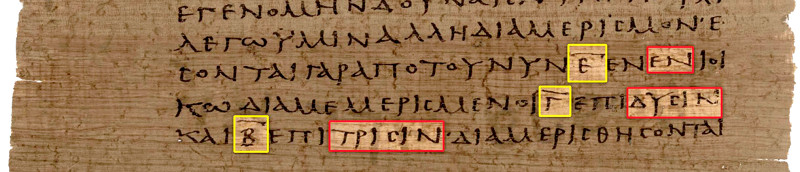 ΕΓΕΝΟΜΗΝΔΟΥΝΑΙ
ΛΕΓωΥΜΙΝΑΛΛΗΔΙΑΜΕΡΙϹΜΟΝ·Ε
ϹΟΝΤΑΙΓΑΡΑΠΟΤΟΥΝΥΝΕ̅ΕΝΕΝΙΟΙ
ΚωΔΙΑΜΕΜΕΡΙϹΜΕΝΟΙΓ̅ΕΠΙΔΥϹΙΝ
ΚΑΙΒ̅ΕΠΙΤΡΙϹΙΝ·ΔΙΑΜΕΡΙϹΘΗϹΟΝΤΑΙ